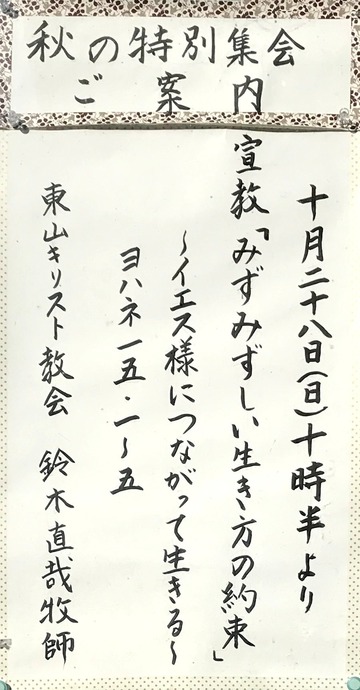 秋の特別集会
ご案内
十月二十八日(日)十時半より
宣教「みずみずしい生き方の約束」
～イエス様につながって生きる～
ヨハネ一五・一～五
東山キリスト教会 鈴木直哉牧師